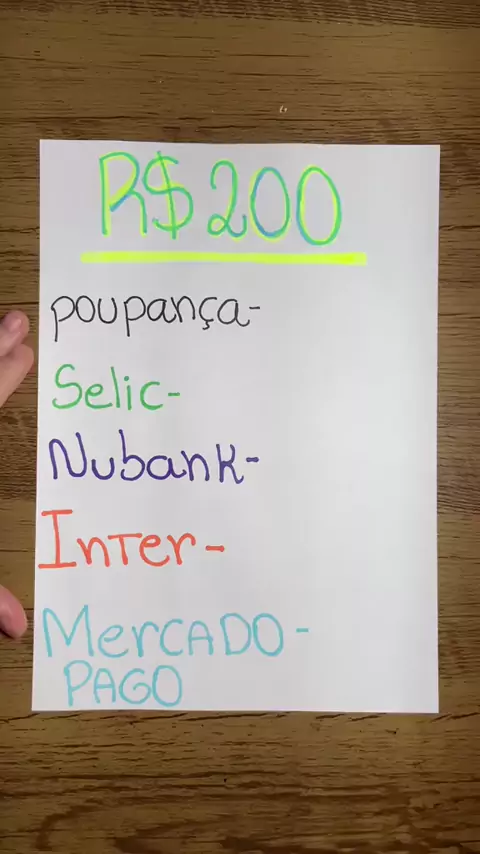 R$ 200
poupança-
Selic-
Nubank-
Inter-
MercADO-
PAGO